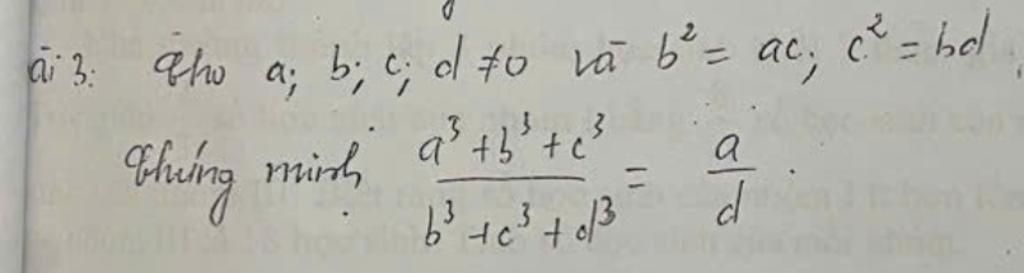 ài 3: Cho a; b; c; d ≠ 0 và b² = ac; c² = bd;
Chứng minh (a³ + b³ + c³)/(b³ + c³ + d³) = a/d.